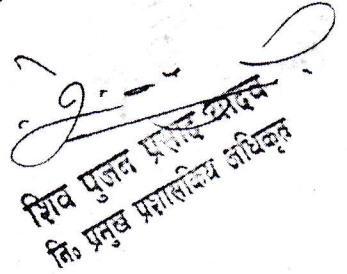 शिव पुजन प्रसाद यादव
नि० प्रमुख प्रशासकिय अधिकृत